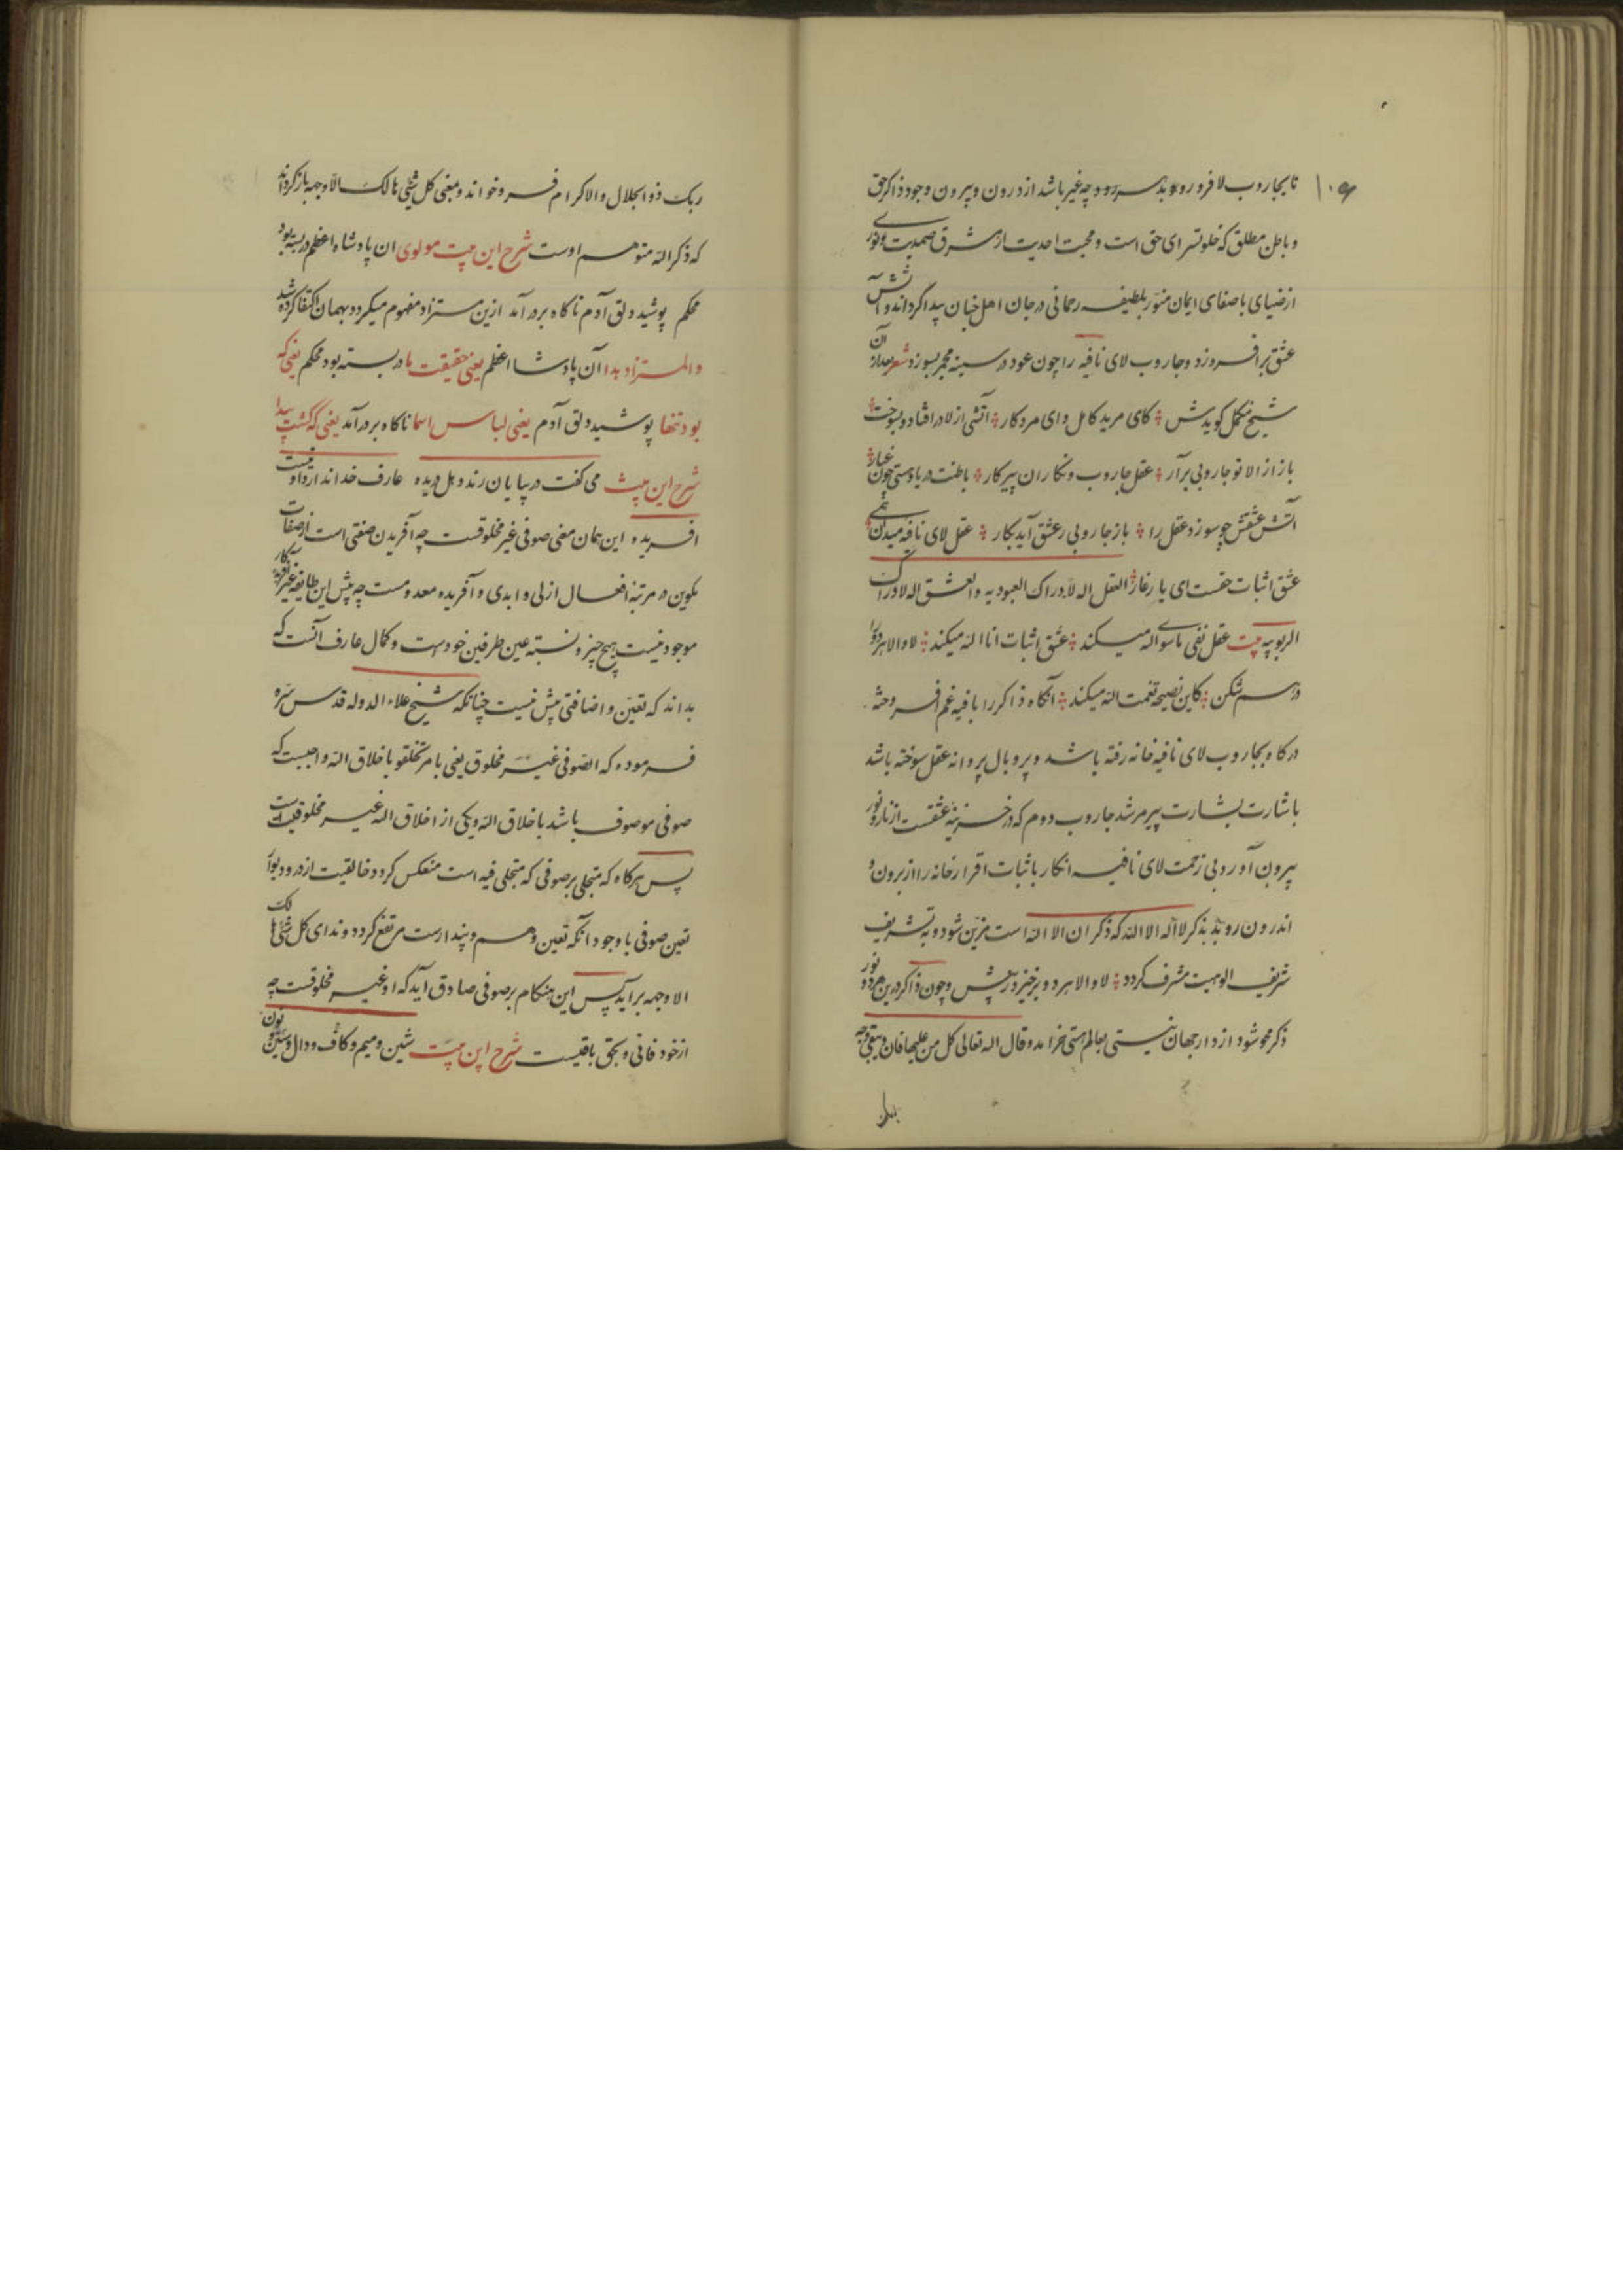 ۱۰۹
تا بجاروب لا فرو روبد هر چه غیر باشد از درون و بیرون وجود ذاکر حق
و باطن مطلق که خلوتسرای حق است و محبت احدیت از مشرق صمدیت بنور
از ضیای با صفای ایمان منور بلطیفه رحمانی در جان اهل جنان پیدا گرداند و آتش
عشق برافروزد و جاروب لای نافیه را چون عود در سینه مجمر بسوزد شعر بعد از آن
شیخ مکمل گویدش کای مرید کامل و ای مرد کار آتشی از لا در افتاد و بسوخت
باز از الا تو جاروبی برآر عقل جاروب و نگار آن پیر کار باطنت دریا و هستی چون غبار
آتش عشقش چو سوزد عقل را باز جاروبی ز عشق آید بکار عقل لای نافیه میدان همی
عشق اثبات حقست ای یار غار العقل اله لادراک العبودیه والعشق اله لادراک
الربوبیه بیت عقل نفی ماسوی الله میکند عشق اثبات انا الله میکند لا و الا هر دو را
در هم شکن کاین نصیحه نعمت الله میکند آنگاه ذاکر را
درگاه بجاروب لای نافیه خانه رفته باشد و پر و بال پروانه عقل سوخته باشد
باشارت بشارت پیر مرشد جاروب دوم که در خزینه عشقست از نار و نور
بیرون آورد و بی زحمت لای نافیه انکار باثبات اقرار خانه را از برون و
اندرون روبد بذکر لا اله الا الله که ذکر ان الا الله است مزین شود و به تشریف
شریف الوهیت مشرف گردد لا و الا هر دو برخیزد ز پیش و چون ذاکر درین هر دو نور
ذکر محو شود از دار جهان نیستی بعالم هستی خرامد و قال الله تعالی کل من علیها فان و یبقی وجه
ربک ذوالجلال والاکرام فرو خواند و معنی کل شیئ هالک الا وجهه باز گرداند
که ذکر الله متوهم اوست شرح این بیت مولوی ان پادشاه اعظم در بسته بود
محکم پوشید دلق آدم ناگاه بر در آمد ازین مستزاد مفهوم میگردد بهمان اکتفا کرده شد
والمستزاد هذا آن پادشاه اعظم یعنی حقیقت ما در بسته بود محکم یعنی که
بود تنها پوشید دلق آدم یعنی لباس اسما ناگاه بر در آمد یعنی که گشت پیدا
شرح این بیت می گفت در بیابان رند دهل دریده عارف خدا ندارد او نیست
افریده این همان معنی صوفی غیر مخلوقست چه آفریدن صفتی است از صفات
تکوین در مرتبه افعال ازلی و ابدی و آفریده معدومست چه پیش این طایفه غیر آفریدگار
موجود نیست هیچ چیز و نسبته عین طرفین خودست و کمال عارف آنست که
بداند که تعین و اضافتی بیش نیست چنانکه شیخ علاء الدوله قدس سره
فرموده که الصوفی غیر مخلوق یعنی بامر تخلقو باخلاق الله واجبست که
صوفی موصوف باشد باخلاق الله و یکی از اخلاق الله غیر مخلوقیت است
پس هرگاه که متجلی بر صوفی که متجلی فیه است منعکس گردد خالقیت از در و دیوار
تعین صوفی با وجود آنکه تعین وهم و پندارست مرتفع گردد و ندای کل شئ هالک
الا وجهه برآید پس این هنگام بر صوفی صادق آید که او غیر مخلوقست چه
از خود فانی و بحق باقیست شرح این بیت شین و میم و کاف و دال و سین و نون